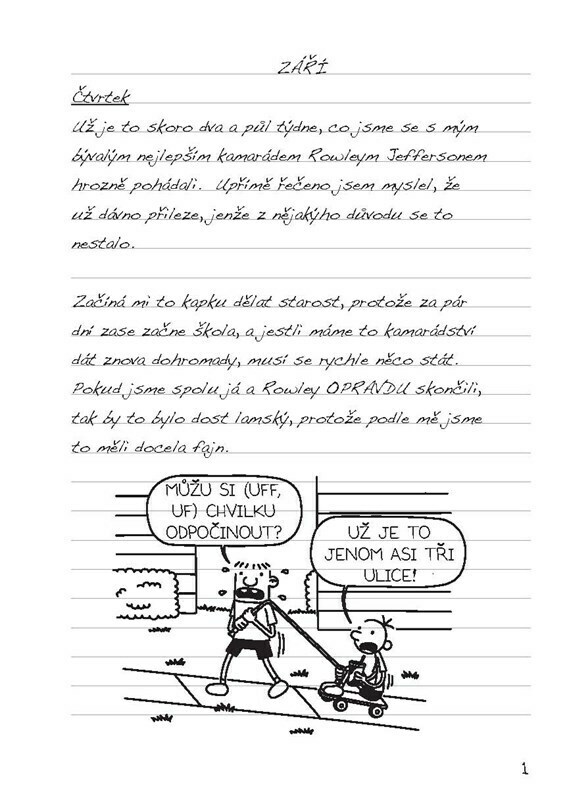 ZÁŘÍ
Čtvrtek
Už je to skoro dva a půl týdne, co jsme se s mým
bývalým nejlepším kamarádem Rowleym Jeffersonem
hrozně pohádali. Upřímě řečeno jsem myslel, že
už dávno přileze, jenže z nějakýho důvodu se to
nestalo.
Začíná mi to kapku dělat starost, protože za pár
dní zase začne škola, a jestli máme to kamarádství
dát znova dohromady, musí se rychle něco stát.
Pokud jsme spolu já a Rowley OPRAVDU skončili,
tak by to bylo dost lamský, protože podle mě jsme
to měli docela fajn.
MŮŽU SI (UFF,
UF) CHVILKU
ODPOČINOUT?
UŽ JE TO
JENOM ASI TŘI
ULICE!
1